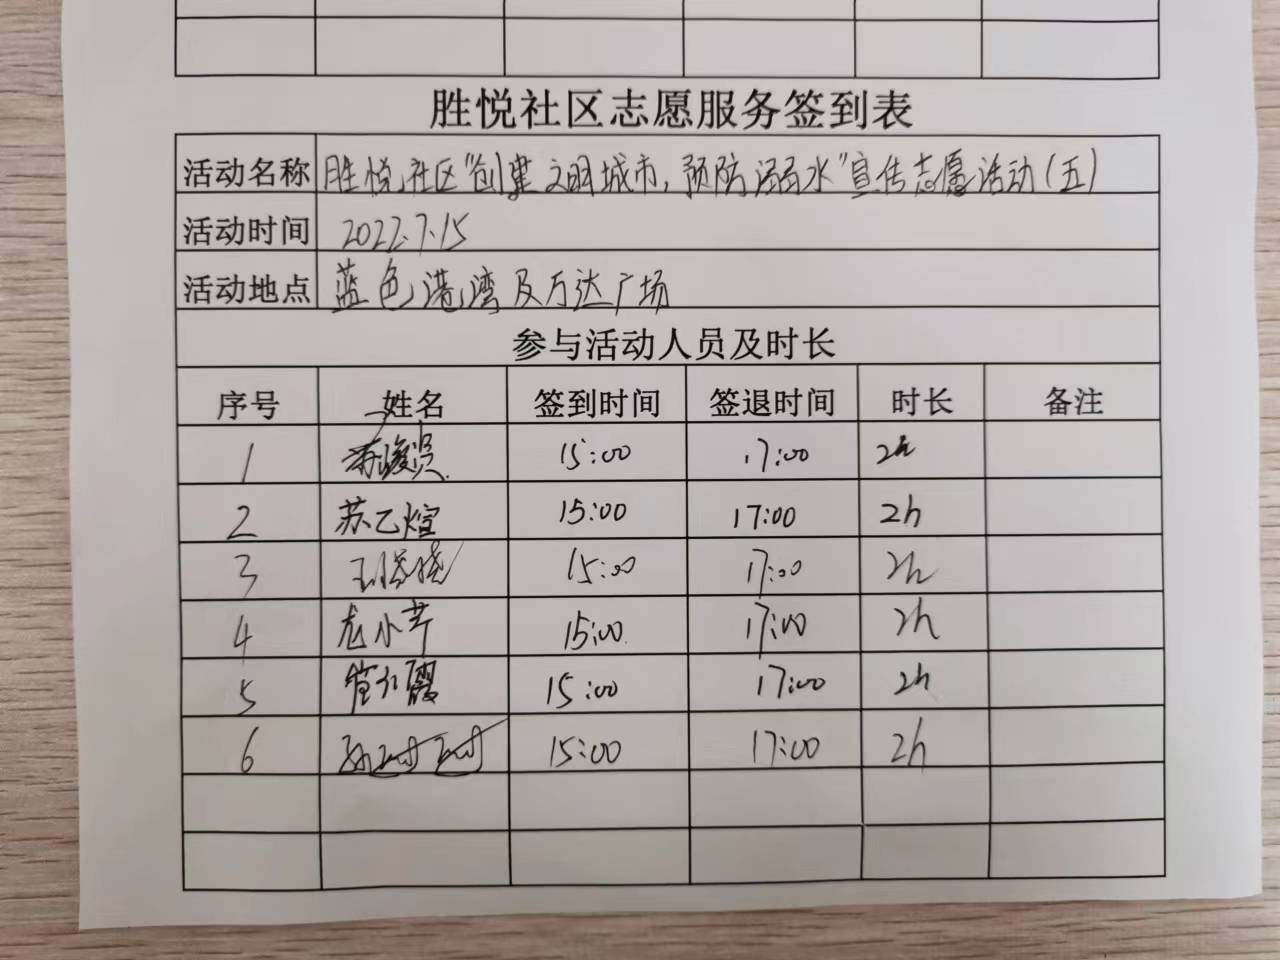 胜悦社区志愿服务签到表
活动名称 胜悦社区"创建文明城市,预防溺水"宣传志愿活动(五)
活动时间 2022.7.15
活动地点 蓝色港湾及万达广场
参与活动人员及时长
序号 姓名 签到时间 签退时间 时长 备注
1 15:00 17:00 2h
2 苏乙煊 15:00 17:00 2h
3 15:00 17:00 2h
4 龙小芹 15:00 17:00 2h
5 15:00 17:00 2h
6 15:00 17:00 2h